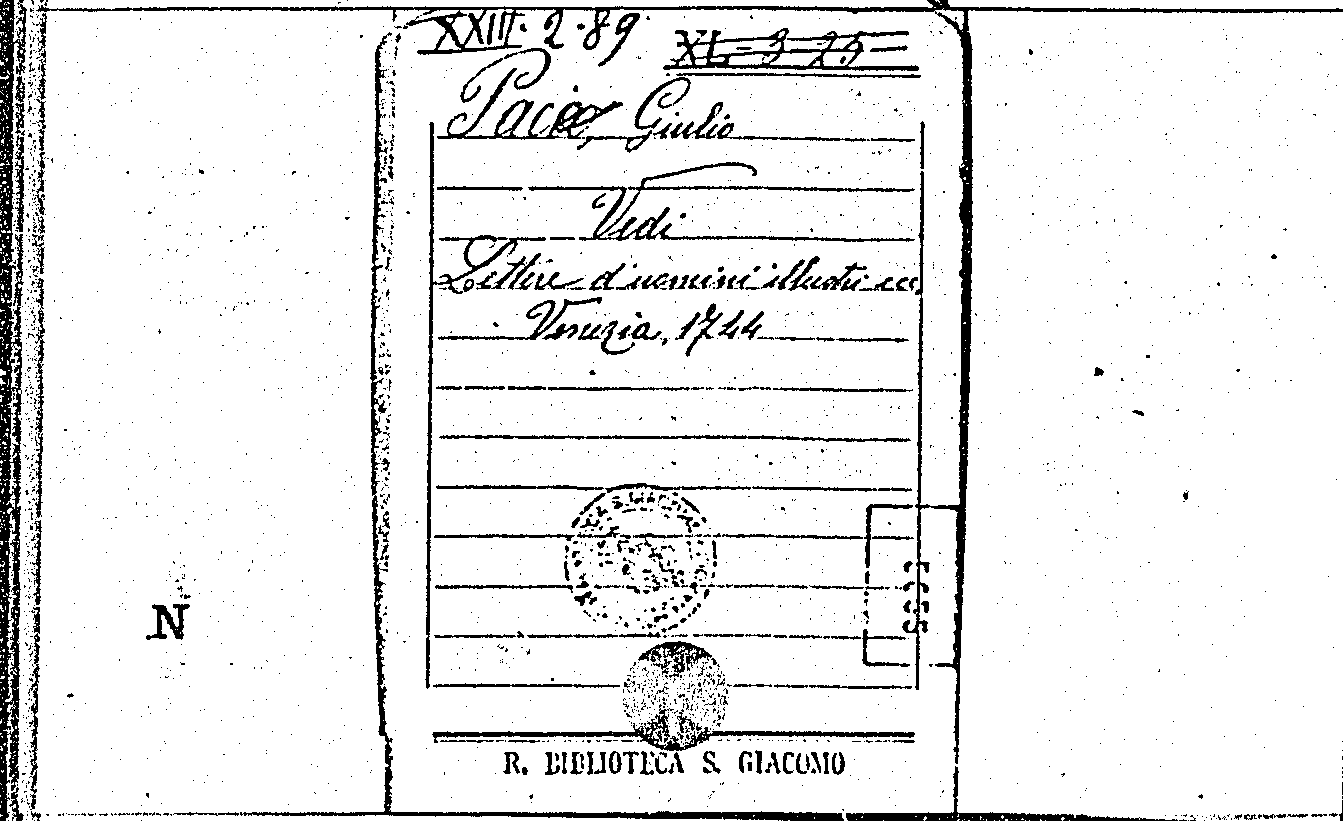 XXIII. 2. 89
XL - 3 - 25
Pace, Giulio
Vedi
Lettere d'uomini illustri ecc.
Venezia, 1744
N
R. BIBLIOTECA S. GIACOMO